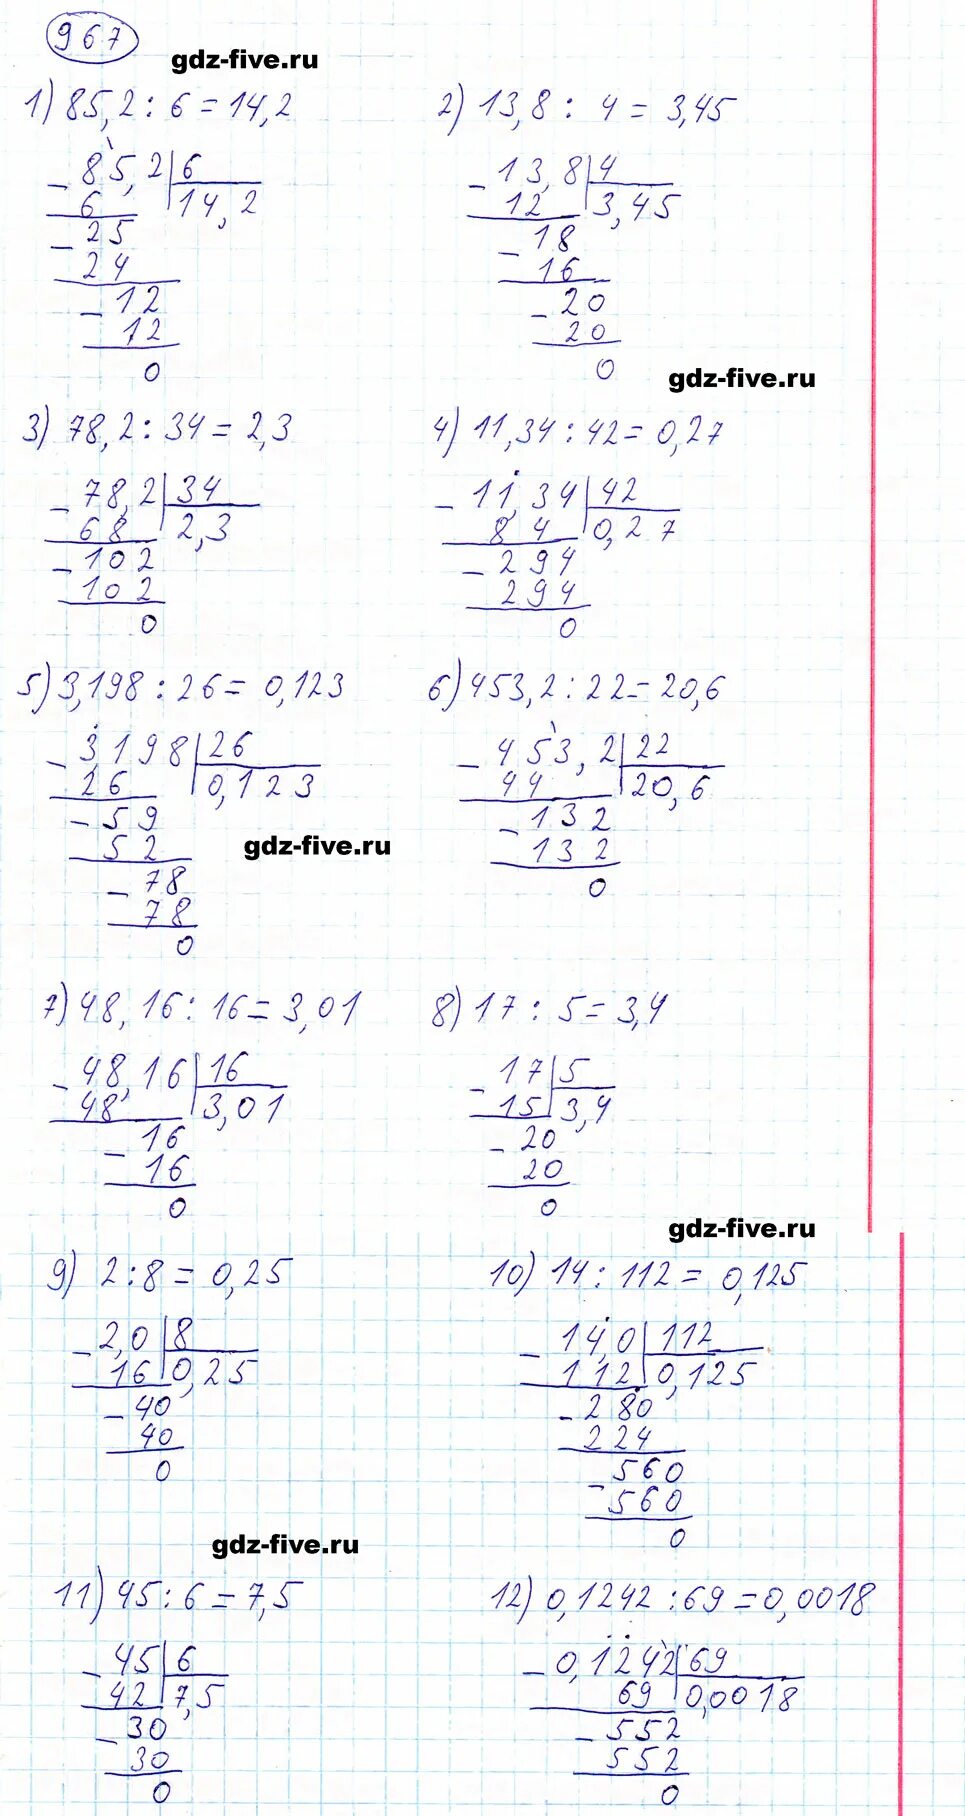 967
gdz-five.ru
1) 85,2 : 6 = 14,2
85,2 | 6
- 6 | 14,2
- 25
24
- 12
12
0
2) 13,8 : 4 = 3,45
- 13,8 | 4
12 | 3,45
- 18
16
- 20
20
0
gdz-five.ru
3) 78,2 : 34 = 2,3
- 78,2 | 34
68 | 2,3
- 102
102
0
4) 11,34 : 42 = 0,27
- 11,34 | 42
8 4 | 0,27
- 294
294
0
5) 3,198 : 26 = 0,123
- 3,198 | 26
26 | 0,123
- 59
52
- 78
78
0
gdz-five.ru
6) 453,2 : 22 = 20,6
- 453,2 | 22
44 | 20,6
- 132
132
0
7) 48,16 : 16 = 3,01
- 48,16 | 16
48 | 3,01
- 16
16
0
8) 17 : 5 = 3,4
- 17 | 5
15 | 3,4
- 20
20
0
gdz-five.ru
9) 2 : 8 = 0,25
- 2,0 | 8
16 | 0,25
- 40
40
0
10) 14 : 112 = 0,125
- 14,0 | 112
112 | 0,125
- 280
224
- 560
560
0
gdz-five.ru
11) 45 : 6 = 7,5
- 45 | 6
42 | 7,5
- 30
30
0
12) 0,1242 : 69 = 0,0018
- 0,1242 | 69
69 | 0,0018
- 552
552
0